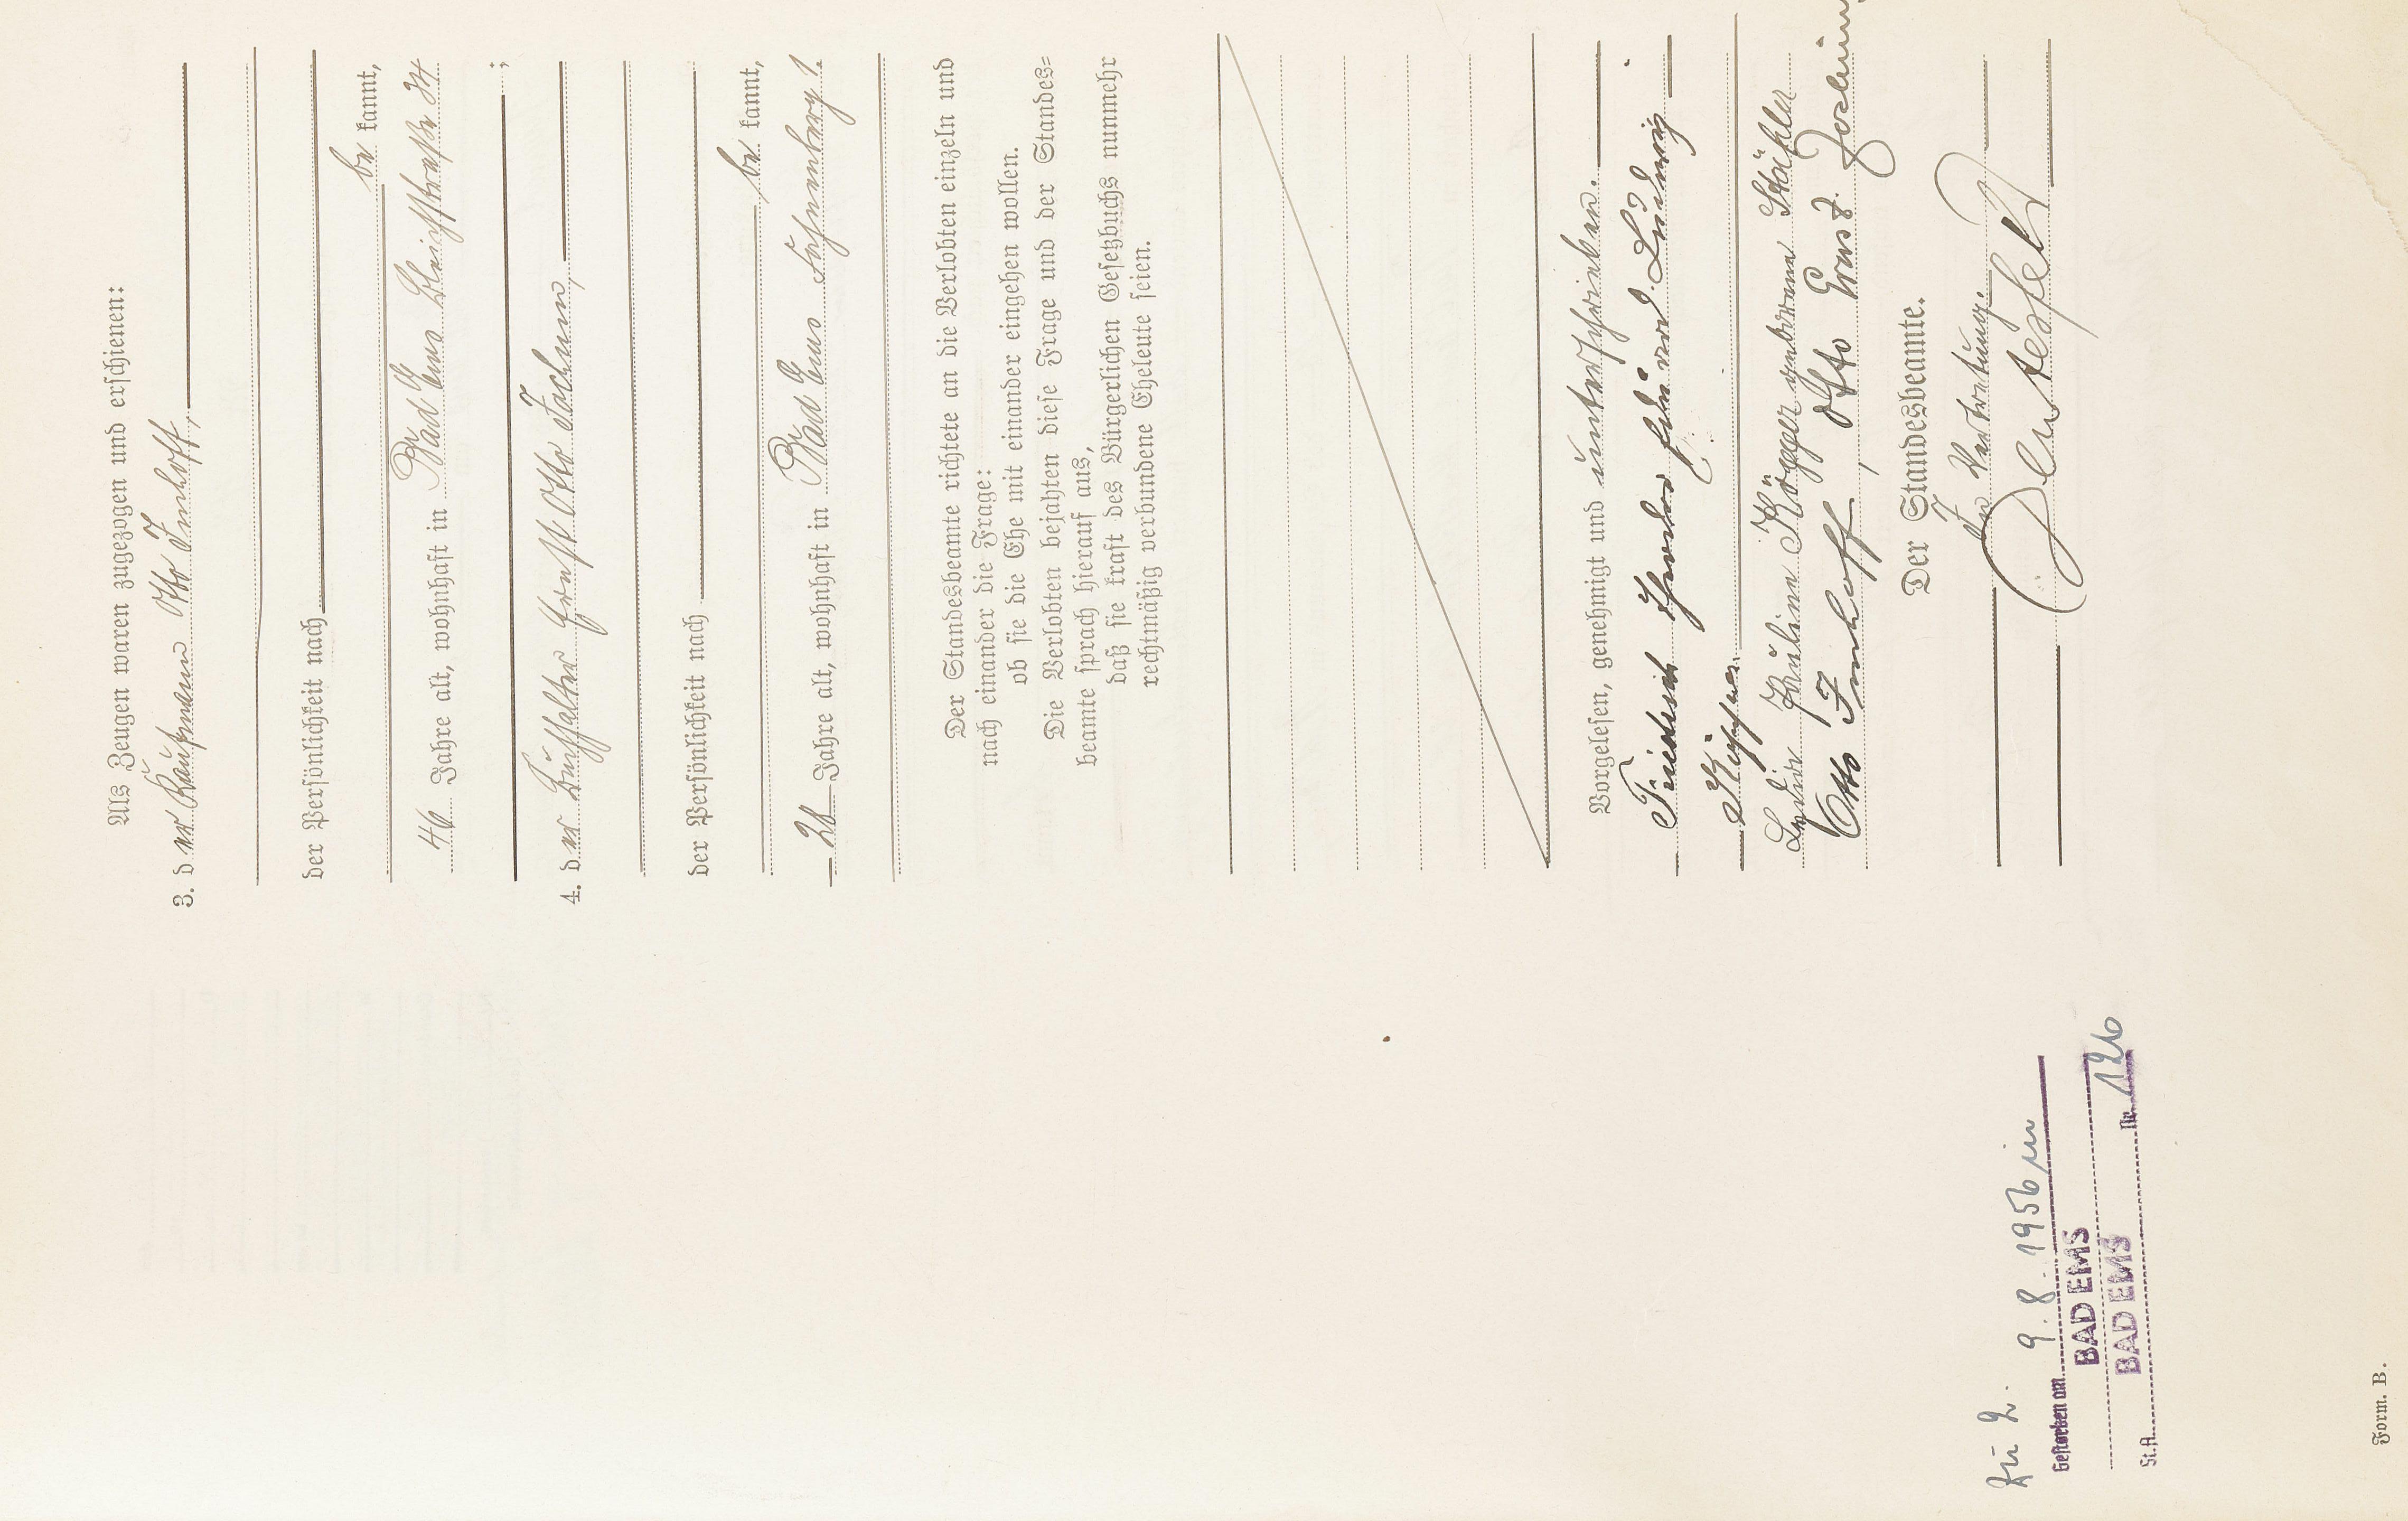 Als Zeugen waren zugezogen und erschienen:
3. der Kaufmann Otto Imhoff,
der Persönlichkeit nach
be kannt,
46 Jahre alt, wohnhaft in Bad Ems Bleichstraße 34
;
4. der Buchhalter Ernst Otto Jochum,
der Persönlichkeit nach
be kannt,
Jahre alt, wohnhaft in Bad Ems
Der Standesbeamte richtete an die Verlobten einzeln und
nach einander die Frage:
ob sie die Ehe mit einander eingehen wollen.
Die Verlobten bejahten diese Frage und der Standes=
beamte sprach hierauf aus,
daß sie kraft des Bürgerlichen Gesetzbuchs nunmehr
rechtmäßig verbundene Eheleute seien.
Vorgelesen, genehmigt und unterschrieben.
Friedrich Theodor Eduard Ludwig
Pauline geborene Stähler
Otto Imhoff, Otto Ernst Jochum
Der Standesbeamte.
In Vertretung.
Zu 2.
Gestorben am 9. 8. 1956 in
BAD EMS
St.A. BAD EMS Nr. 126
Form. B.